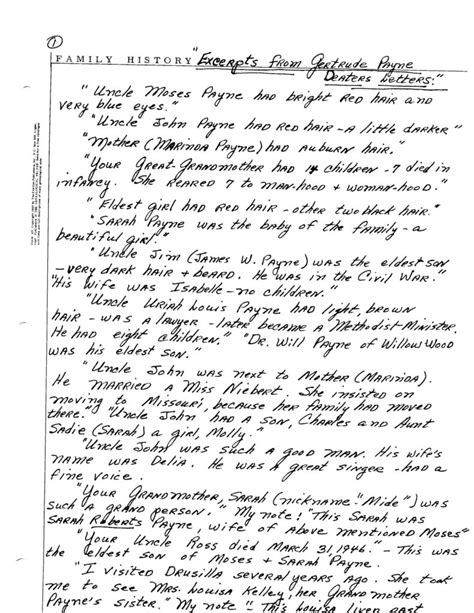 ①
FAMILY HISTORY "Excerpts from Gertrude Payne
Deaters Letters:"
"Uncle Moses Payne had bright red hair and
very blue eyes."
"Uncle John Payne had red hair - a little darker"
"Mother (Marinda Payne) had auburn hair."
"Your Great-Grandmother had 14 children - 7 died in
infancy. She reared 7 to man-hood + woman-hood."
"Eldest girl had red hair - other two black hair."
"Sarah Payne was the baby of the family - a
beautiful girl."
"Uncle Jim (James W. Payne) was the eldest son
- very dark hair + beard. He was in the Civil War."
"His wife was Isabelle - no children."
"Uncle Uriah Louis Payne had light, brown
hair - was a lawyer - later became a Methodist Minister.
He had eight children." "Dr. Will Payne of Willow Wood
was his eldest son."
"Uncle John was next to Mother (Marinda).
He married a Miss Niebert. She insisted on
moving to Missouri, because her family had moved
there." "Uncle John had a son, Charles and Aunt
Sadie (Sarah) a girl, Molly."
"Uncle John was such a good man. His wife's
name was Delia. He was a great singer - had a
fine voice.
"Your Grandmother, Sarah (nickname "Mide") was
such a grand person." My note! "This Sarah was
Sarah Roberts Payne, wife of above mentioned Moses"
"Your Uncle Ross died March 31, 1946. - This was
the eldest son of Moses + Sarah Payne.
"I visited Drusilla several years ago. She took
me to see Mrs. Louisa Kelley, her grand mother
Payne's sister." My note "This Louisa lived past